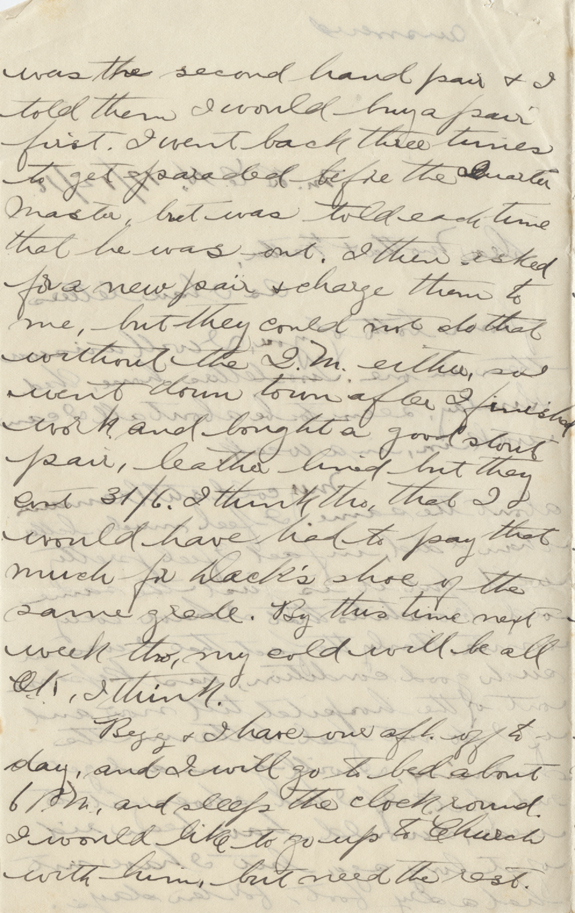 was the second hand pair & I
told them I would buy a pair
first. I went back three times
to get paraded before the Quarter
Master, but was told each time
that he was out. I then asked
for a new pair & charge them to
me, but they could not do that
without the Q.M. either, so I
went down town after I finished
work and bought a good stout
pair, leather lined but they
cost 31/6. I think tho, that I
would have had to pay that
much for black's shoe of the
same grade. By this time next
week tho, my cold will be all
OK, I think.
Begg & I have our aft. off to
day, and I will go to bed about
6 P.M., and sleep the clock round.
I would like to go up to Church
with him, but need the rest.